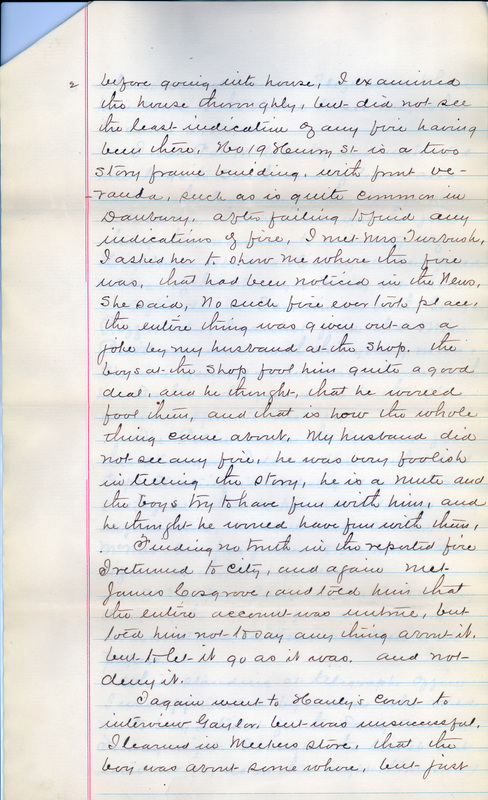 2
before going into house, I examined
the house thoroughly, but did not see
the least indication of any fire having
been there, No 19 Henry St is a two
story frame building, with front ve-
-randa, such as is quite common in
Danbury, after failing to find any
indications of fire, I met Mrs Turbush,
I asked her to show me where the fire
was, that had been noticed in the News,
She said, No such fire ever took place,
the entire thing was given out as a
joke by my husband at the shop. the
boys at the shop fool him quite a good
deal, and he thought, that he would
fool them, and that is how the whole
thing came about, My husband did
not see any fire, he was very foolish
in telling the story, he is a mute and
the boys try to have fun with him, and
he thought he would have fun with them,
Finding no truth in the reported fire
I returned to city, and again met
James Cosgrove, and told him that
the entire account was untrue, but
told him not to say any thing about it.
but to let it go as it was. and not
deny it.
I again went to Hanly's Court to
interview Gaylor, but was unsuccessful,
I learned in Meekers store, that the
boy was about some where, but just